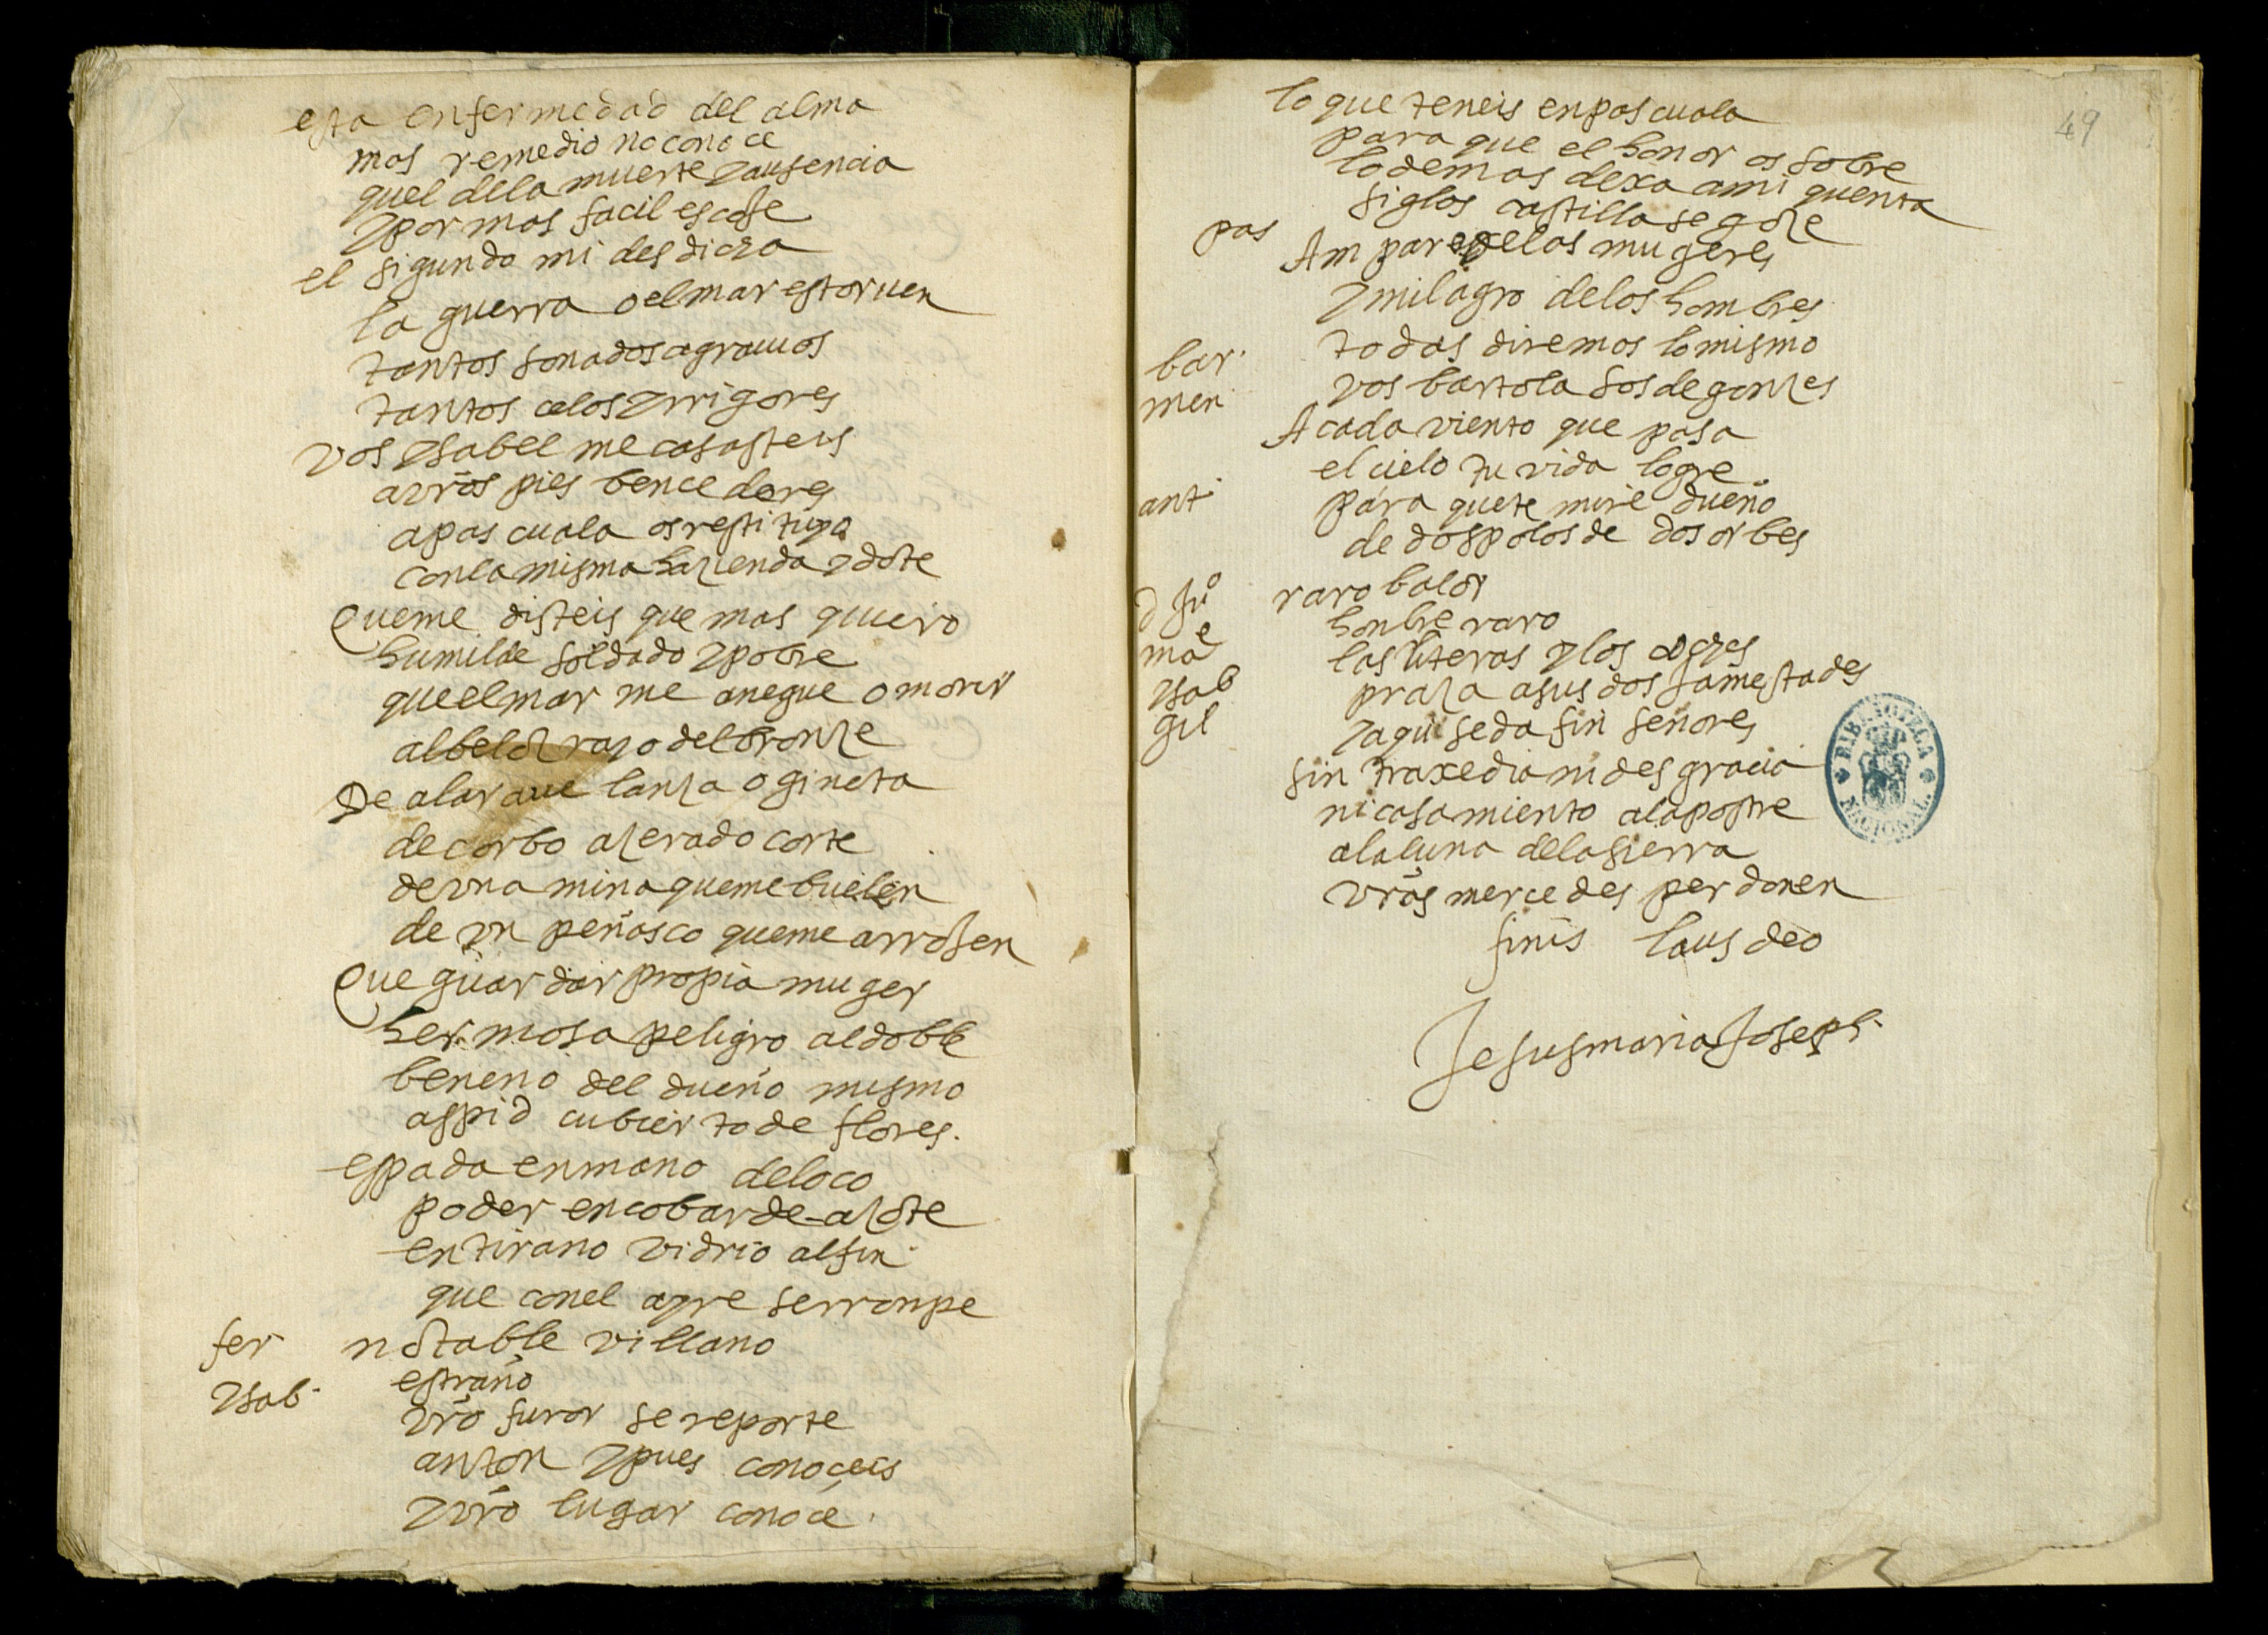 esta enfermedad del alma
mas remedio no conoce
quel de la muerte y ausencia
y por mas facil escoje
el sigundo mi desdicha
la guerra o el mar estoruen
tantos sonados agrauios
tantos celos y rrigores
vos ysabel me casasteis
a vrõs pies bencedores
a pascuala os restituya
con la misma hazienda y dote
Que me disteis que mas quiero
humilde soldado y pobre
que el mar me anegue o morir
al beloz rayo del bronze
De alaraue lanza o gineta
de corbo azerado corte
de vna mina que me buelen
de vn peñasco que me arrojen
Que guardar propia muger
hermosa peligro al doble
beneno del dueño mismo
aspid cubierto de flores.
espada en mano de loco
poder en cobarde azote
en tirano vidrio al fin
que con el ayre se rronpe
fer notable villano
ysab. estraño
vrõ furor se reporte
anton y pues conoçeis
y vrõ lugar conoce.
49
lo que teneis en pascuala
para que el honor os sobre
lo demas dexa a mi quenta
siglos castilla se goze
pas Amparo de las mugeres
y milagro de los hombres
bar. todas diremos lo mismo
men vos bartola sos de gonzes
A cada viento que pasa
el cielo tu vida logre
ant. para que te mire dueño
de dos polos de dos orbes
d Juº raro balor
mae honbre raro
ysab las literas y los coches
gil praza a sus dos jamestades
y aqui se da fin señores
sin traxedia ni desgracia
ni casamiento a la postre
a la luna de la sierra
vrãs mercedes perdonen
finis laus deo
Jesus maria Joseph.
BIBLIOTECA NACIONAL.